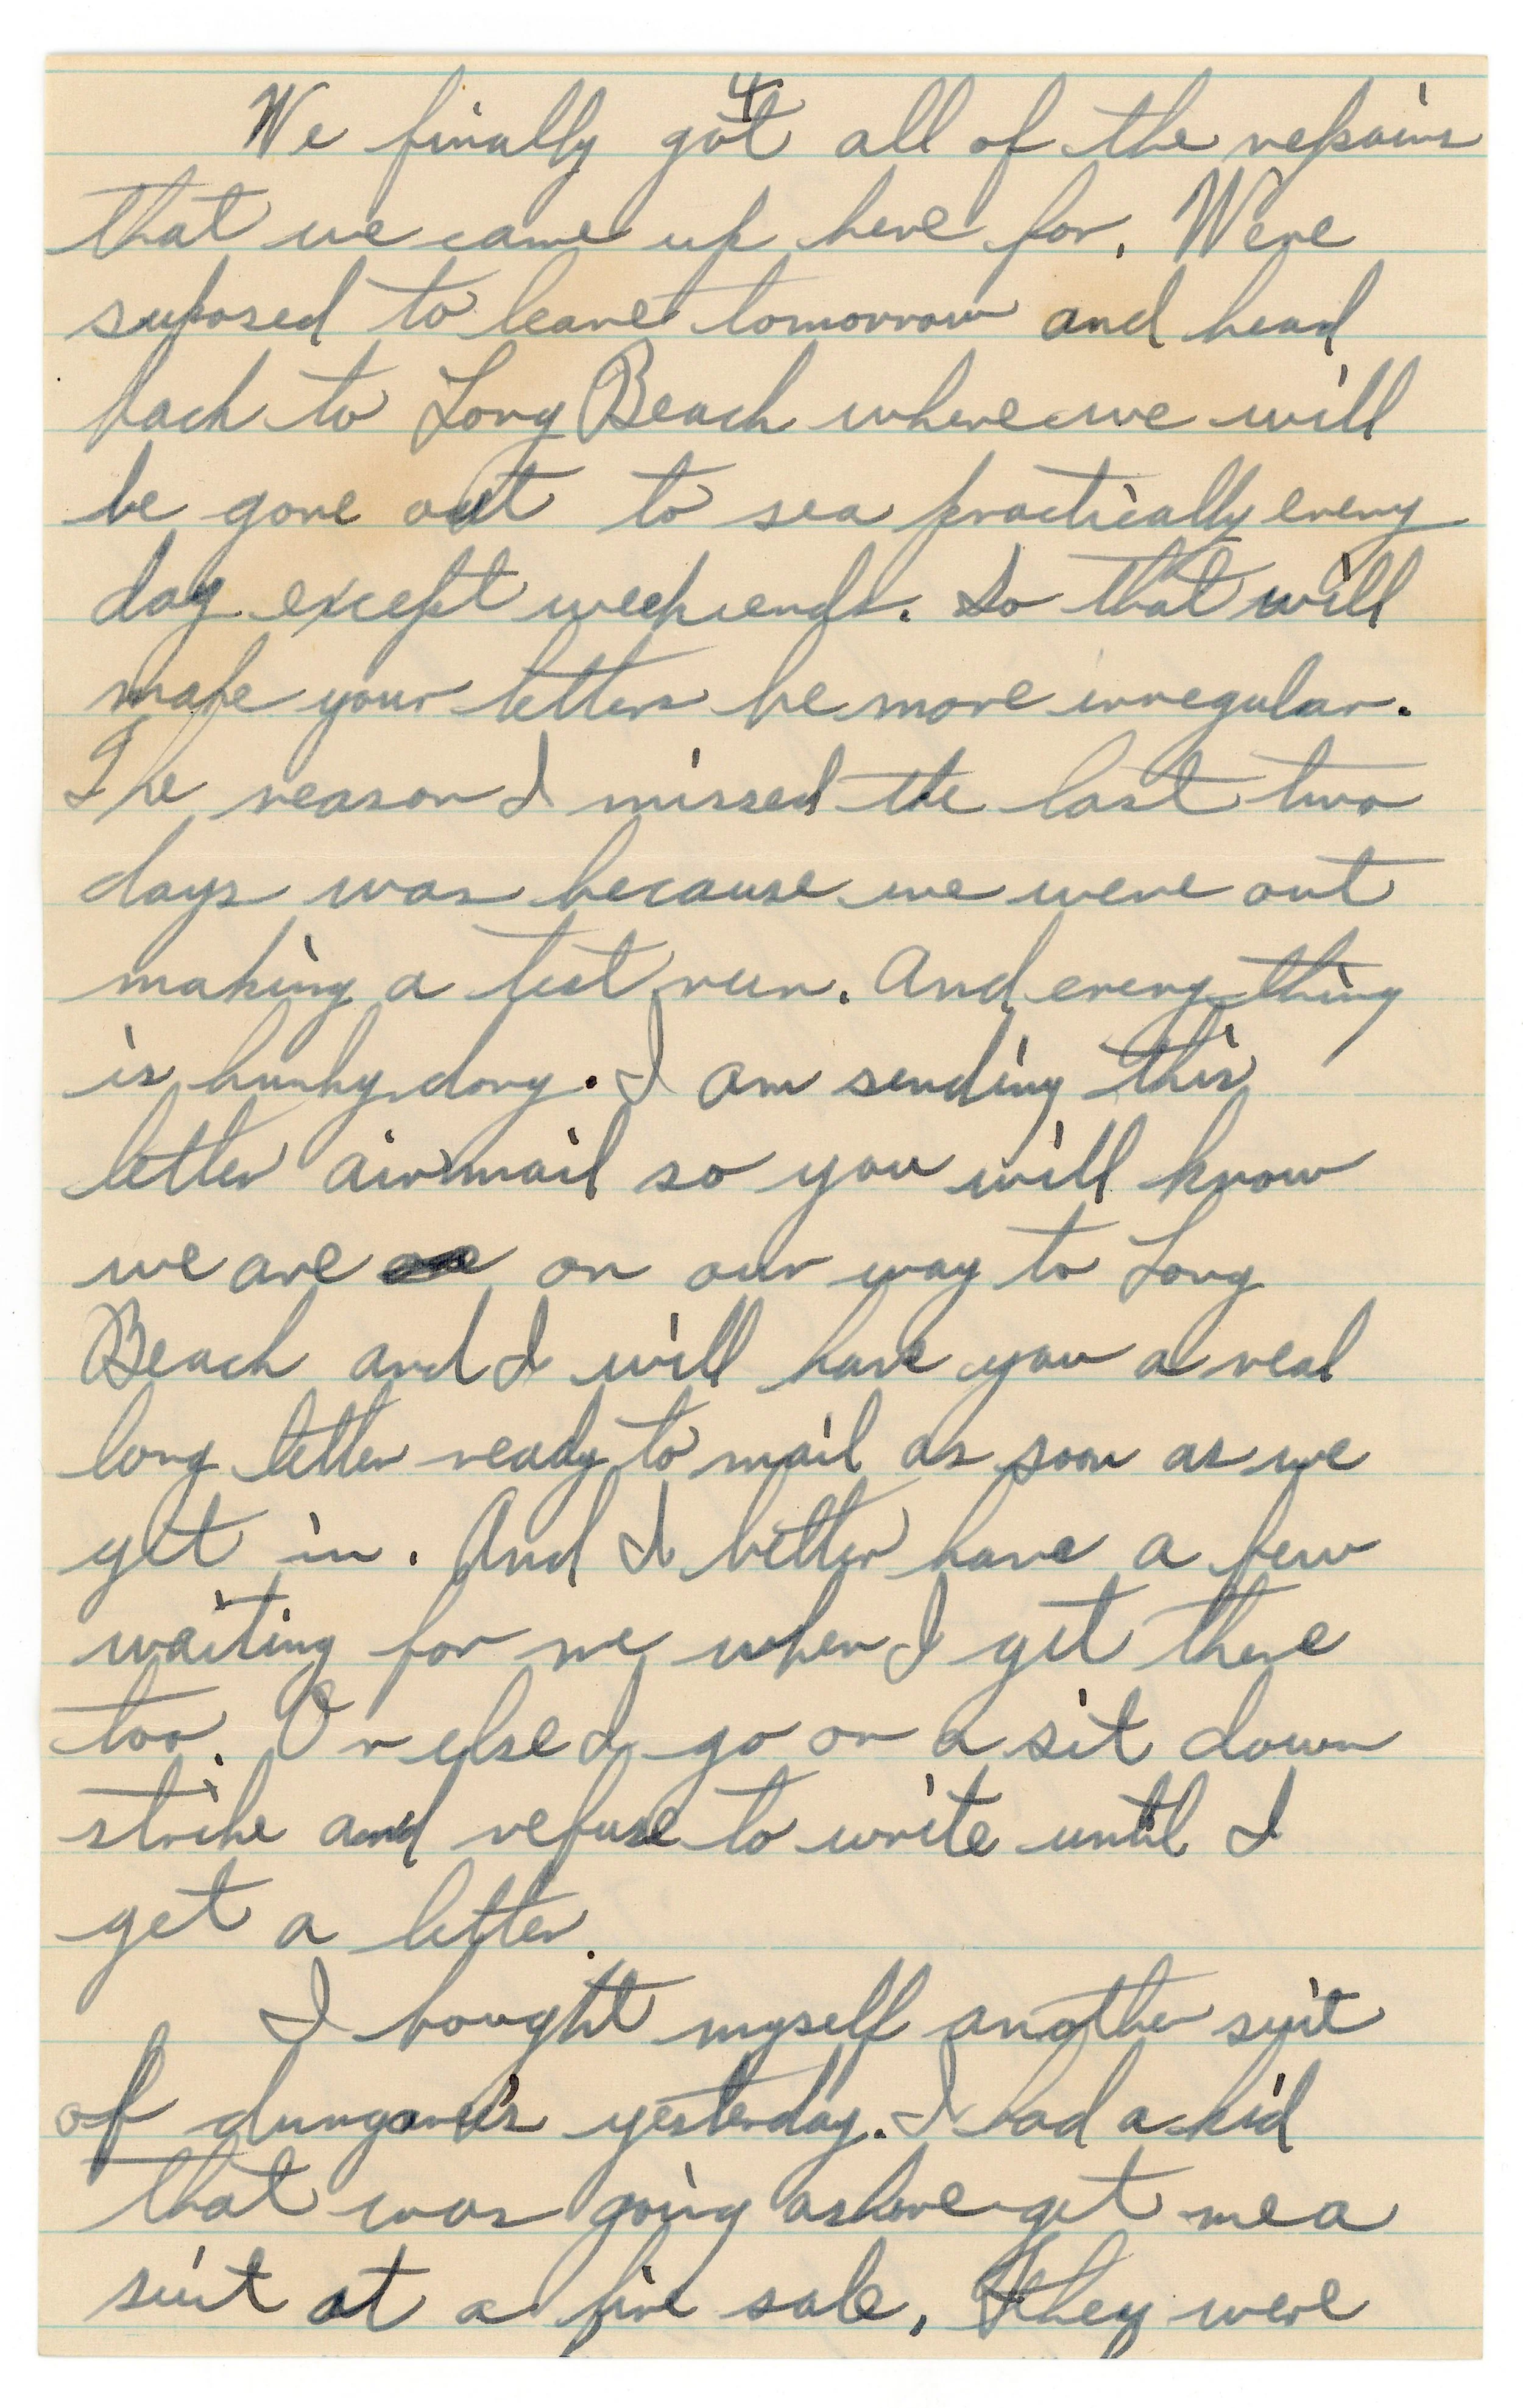 4
We finally got all of the repairs
that we came up here for. Were
suposed to leave tomorrow and head
back to Long Beach where we will
be gone out to sea practically every
day except weekends. So that will
make your letters be more irregular.
The reason I missed the last two
days was because we were out
making a test run. And every thing
is hunky dory. I am sending this
letter airmail so you will know
we are on our way to Long
Beach and I will have you a real
long letter ready to mail as soon as we
get in. And I better have a few
waiting for me when I get there
too. Or else I go on a sit down
strike and refuse to write until I
get a letter.
I bought myself another suit
of yesterday. I had a kid
that was going ashore get me a
suit at a fire sale. They were